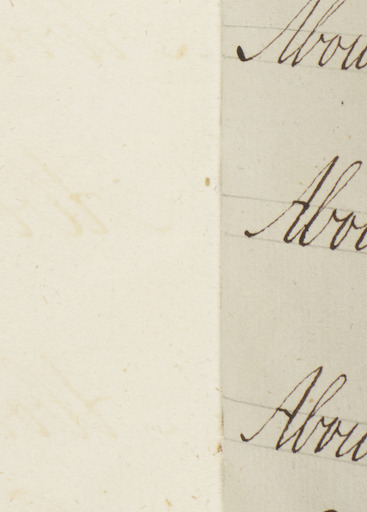 Abou
Abou
Abou